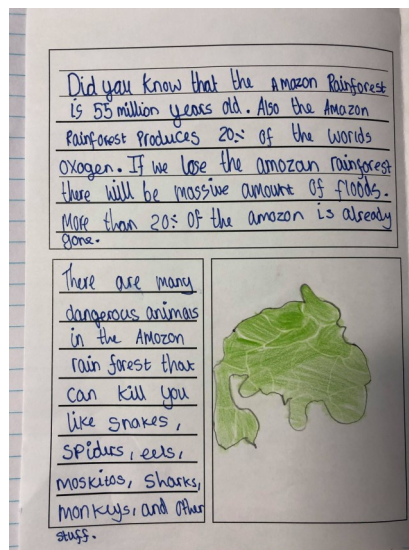 Did you know that the Amazon Rainforest
is 55 million years old. Also the Amazon
Rainforest Produces 20% of the worlds
oxogen. If we lose the amozan rainforest
there will be massive amount of floods.
More than 20% of the amozon is already
gone.
There are many
dangerous animals
in the Amozon
rain forest that
can kill you
like snakes,
spiders, eels,
moskitos, sharks,
monkeys, and other
stuff.